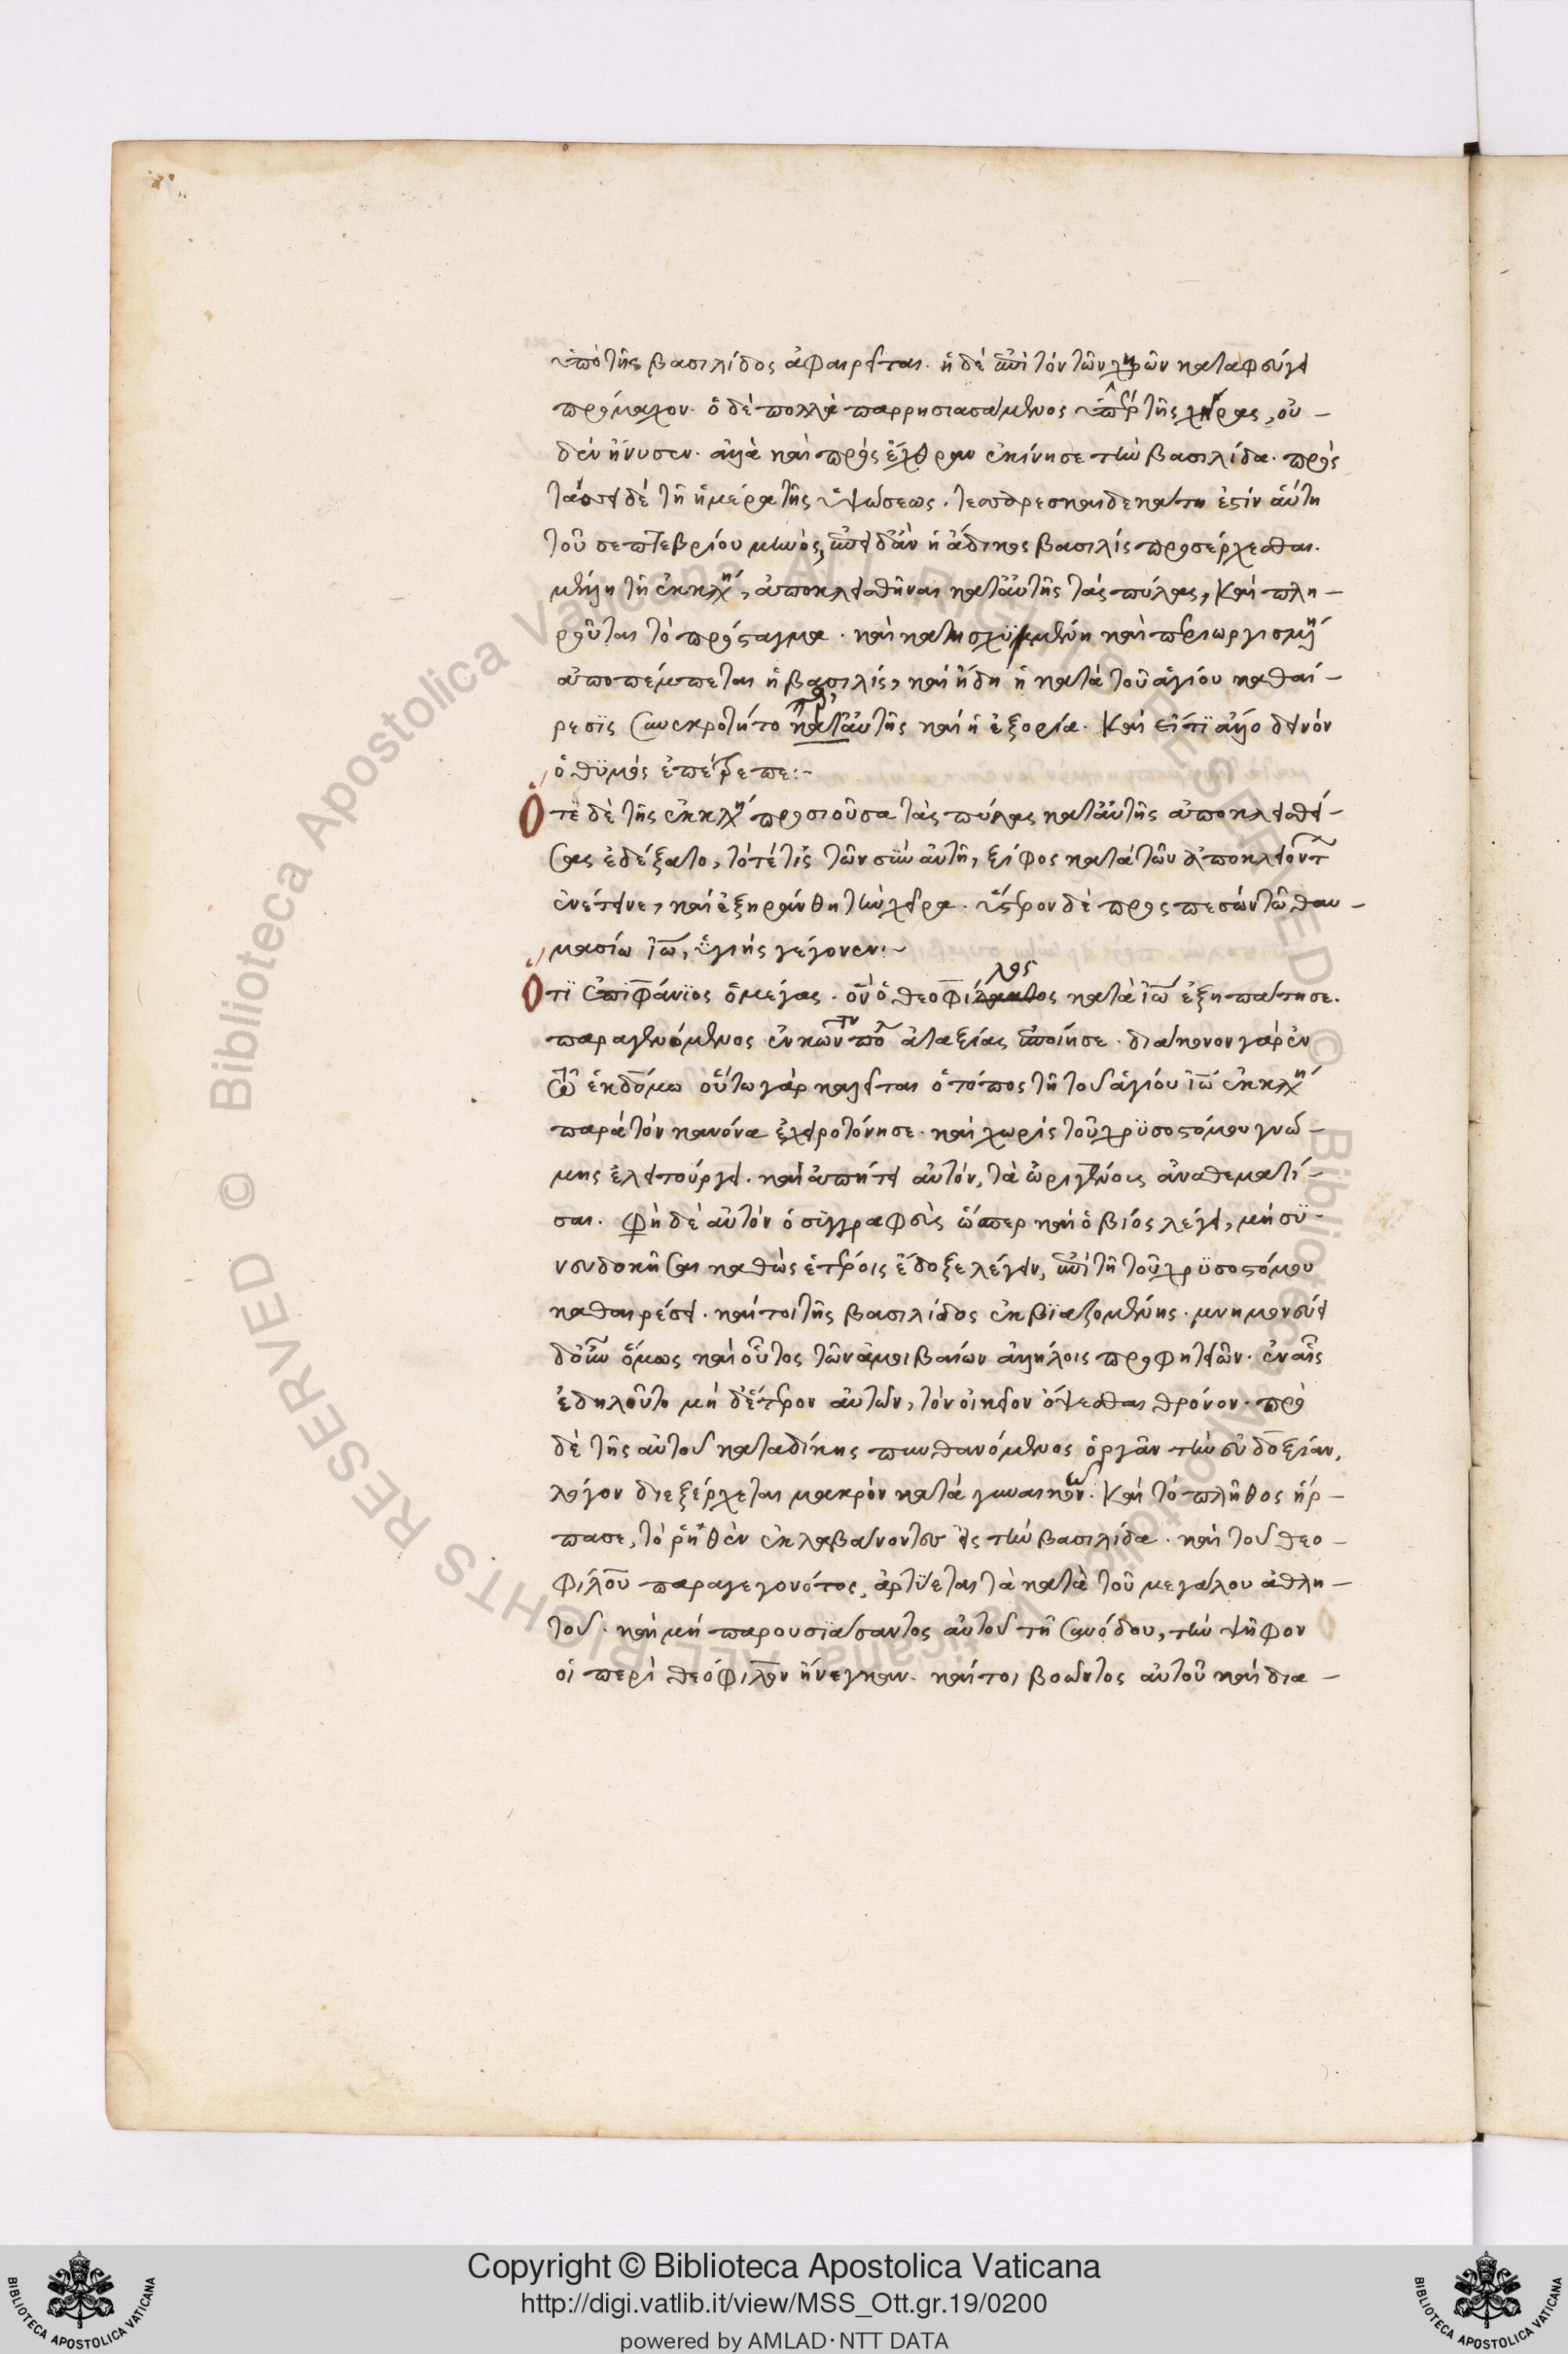 ὑπὸ τῆς βασιλίδος ἀφαιρεῖται. ἡ δὲ ἐπὶ τὸν τῶν χηρῶν καταφεύγει
πρόμαχον. ὁ δὲ πολλὰ παρρησιασάμενος ὑπὲρ τῆς χήρας, οὐ –
δὲν ἤνυσεν. ἀλλὰ καὶ πρὸς ἔχθραν ἐκίνησε τὴν βασιλίδα. πρὸς
τάσσει δὲ τῇ ἡμέρα τῆς ὑψώσεως. τεσσαρεσκαιδεκάτη ἐστὶν αὕτη
τοῦ σεπτεβρίου μηνὸς, ἐπειδὰν ἡ ἄδικος βασιλὶς προσέρχεσθαι.
μέλλῃ τῇ ἐκκλη, ἀποκλεισθῆναι κατ' αὐτῆς τὰς πύλας, Καὶ πλη –
ροῦται τὸ πρόσταγμα. καὶ κατησχυμμένη καὶ
ἀποπέμπεται ἡ βασιλίς, καὶ ἤδη ἡ κατὰ τοῦ ἁγίου καθαί –
ρεσϊς συνεκροτήτο κατ' αὐτῆς καὶ ἡ ἐξορία. Καὶ εἴ τϊ ἄλλο δεινὸν
ὁ θϋμὸς ἐπέτρεπε:~
Ὅτε δὲ τῆς ἐκκλη προσιοῦσα τὰς πύλας κατ' αὐτῆς ἀποκλεισθεί –
σας ἐδέξατο, τότέ τις τῶν σὺν αὐτῇ, ξίφος κατὰ τῶν ἀποκλειόντ
ἐνέτεινε, καὶ ἐξηράνθη τὴν χεῖρα. ὕστερον δὲ προσπεσὼν τῷ θαυ –
μασίω ἰω, ὑγιὴς γέγονεν:~
Ὅτϊ ἐπϊφάνϊος ὁ μέγας. ὃν ὁ θεόφιλος κατὰ ἰω ἐξηπάτησε.
παραγενόμενος ἐν κωντν πο ἀταξίας ἐποίησε. διάκονον γὰρ ἐν
τῷ ἑβδόμω οὕτω γὰρ καλεῖται ὁ τόπος τῇ τοῦ ἁγίου ἰω ἐκκλη
παρὰ τὸν κανόνα ἐχειροτόνησε. καὶ χωρὶς τοῦ χρϋσοστόμου γνώ –
μης ἐλειτούργει. καὶ ἀπῄτει αὐτόν, τὰ ὠριγένους ἀναθεματί –
σαι. φησὶ δὲ αὐτὸν ὁ σϋγγραφεὺς ὥσπερ καὶ ὁ βίος λέγει, μὴ σϋ –
νευδοκῆσαι καθὼς ἑτέροις ἔδοξε λέγειν, ἐπὶ τῇ τοῦ χρϋσοστόμου
καθαιρέσει. καίτοι τῆς βασιλίδος ἐκβϊαζομένης. μνημονεύει
δ' οὖν ὅμως καὶ οὗτος τῶν ἀμοιβαίων ἀλλήλοις προφητειῶν. ἐν αἷς
ἐδηλοῦτο μὴ δ' ἕτερον αὐτῶν, τὸν οἰκεῖον ὄψεσθαι θρόνον. πρὸ
δὲ τῆς αὐτοῦ καταδίκης πυνθανόμενος ὀργᾶν τὴν εὐδοξίαν,
λόγον διεξέρχεται μακρὸν κατὰ γυναικῶν. Καὶ τὸ πλῆθος ἥρ –
πασε, τὸ ῥηθὲν ἐκλαβαίνοντες εἰς τὴν βασιλίδα. καὶ τοῦ θεο –
φίλου παραγεγονότος, ἀρτύεται τὰ κατὰ τοῦ μεγάλου ἀθλη –
τοῦ. καὶ μὴ παρουσϊάσαντος αὐτοῦ τῇ συνόδου, τὴν ψῆφον
οἱ περὶ θεόφιλον ἤνεγκαν. καίτοι βοῶντος αὐτοῦ καὶ δια –
Copyright © Biblioteca Apostolica Vaticana
http://digi.vatlib.it/view/MSS_Ott.gr.19/0200
powered by AMLAD·NTT DATA